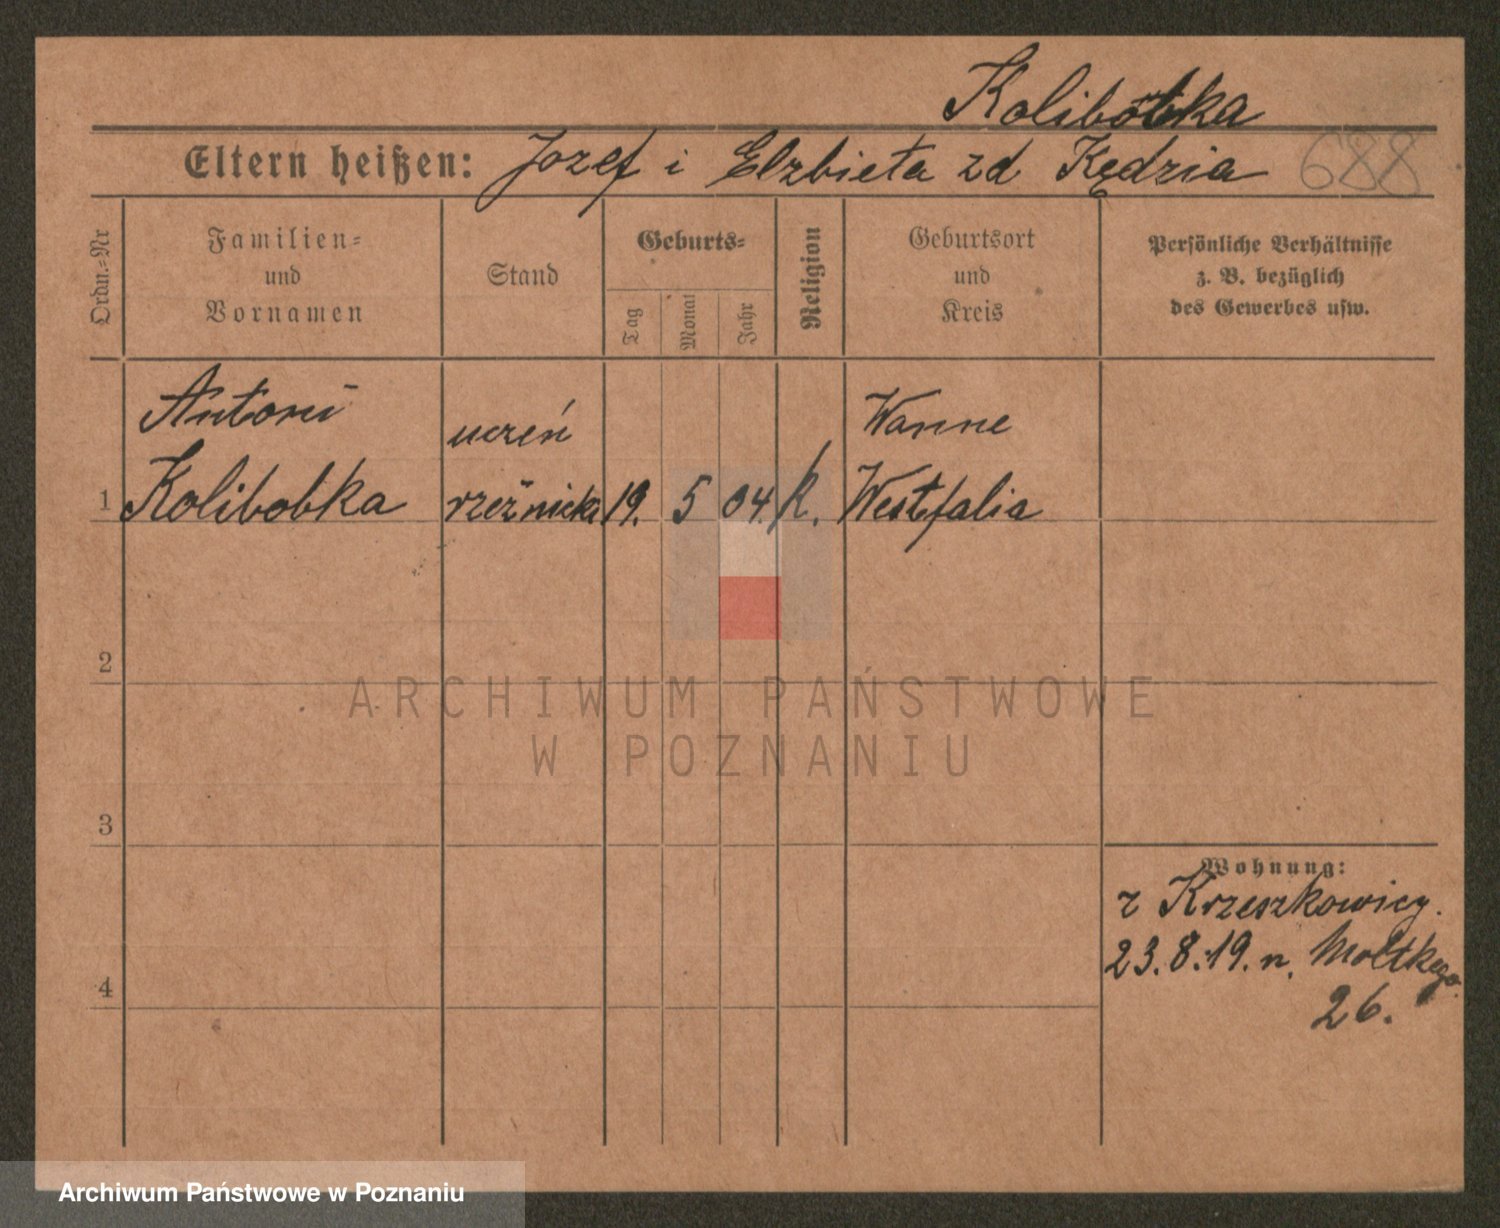 Kolibobka
Eltern heißen: Jozef i Elzbieta zd Kędzia 688
Ordn.=Nr
Familien=
und
Vornamen
Stand
Geburts=
Tag
Monat
Jahr
Religion
Geburtsort
und
Kreis
Persönliche Verhältnisse
z. B. bezüglich
des Gewerbes usw.
Antoni uczeń Wanne
1 Kolibobka rzeźnicki 19. 5 04. k. Westfalia
2
ARCHIWUM PAŃSTWOWE
W POZNANIU
3
Wohnung:
z Krzeszkowicy.
23.8.19. n. Moltkego
4
26.
Archiwum Państwowe w Poznaniu